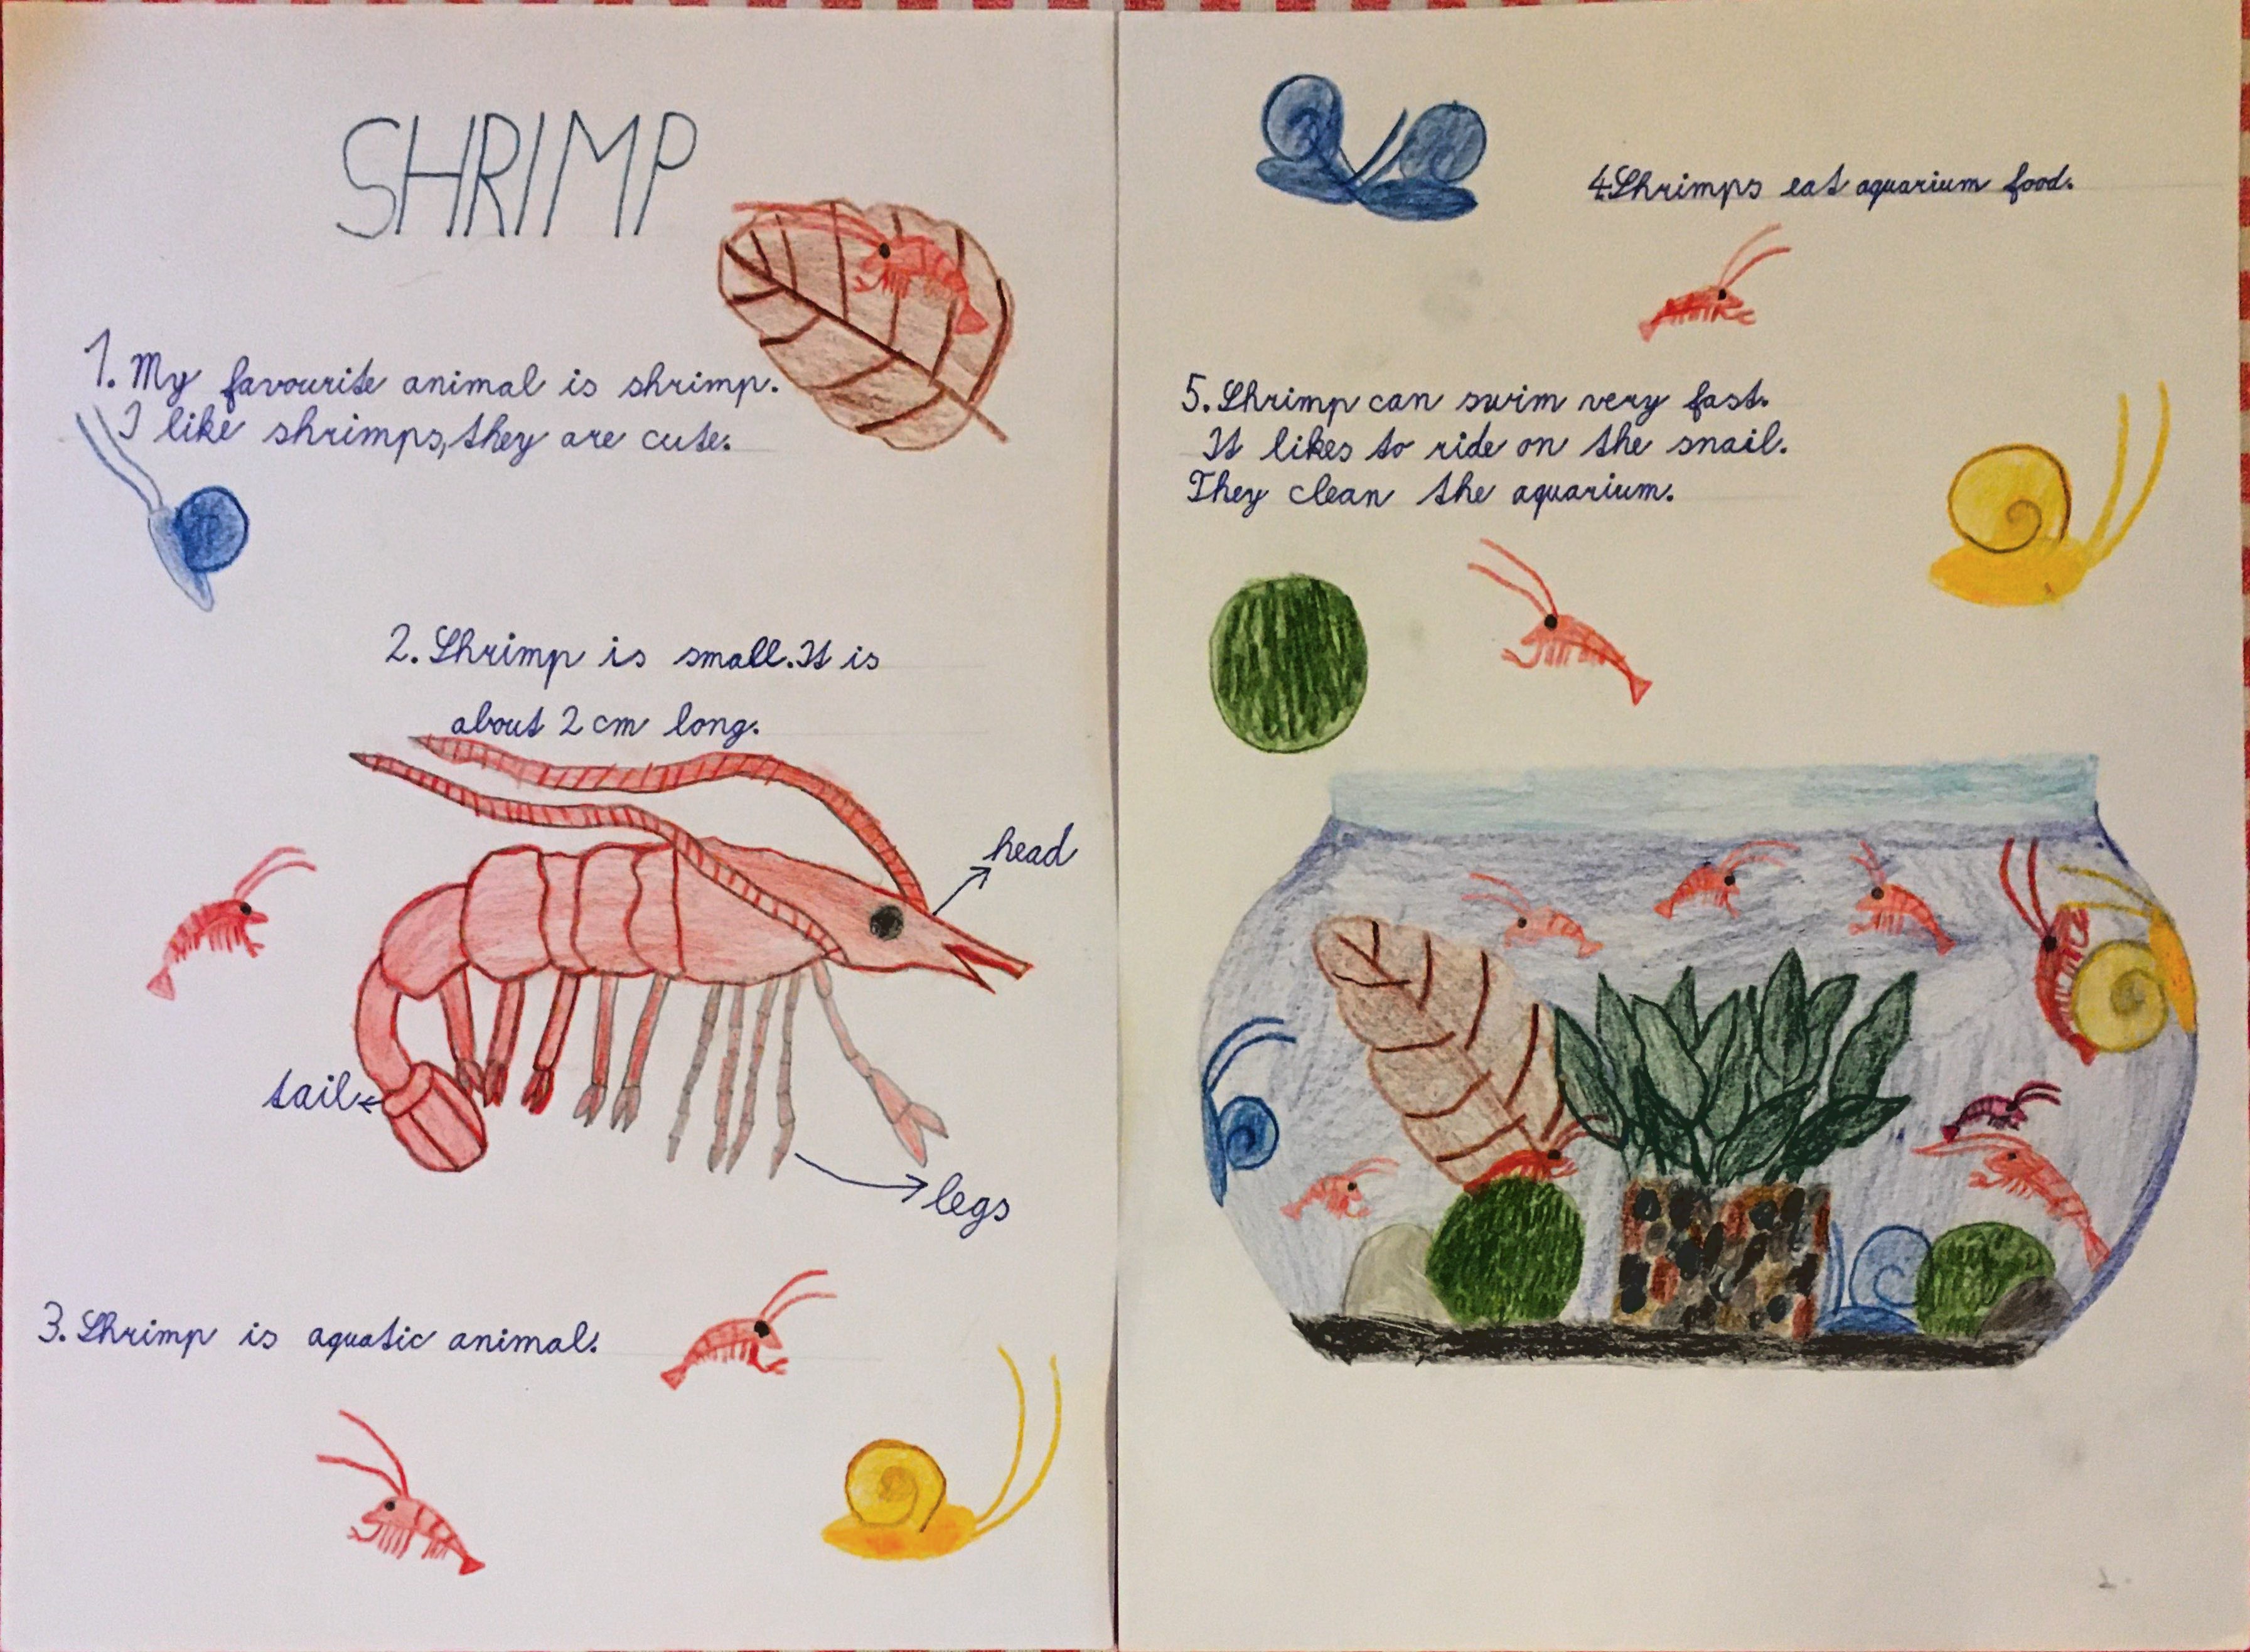 SHRIMP
1. My favourite animal is shrimp.
I like shrimps, they are cute.
2. Shrimp is small. It is
about 2 cm long.
head
tail
legs
3. Shrimp is aquatic animal.
4. Shrimps eat aquarium food.
5. Shrimp can swim very fast.
It likes to ride on the snail.
They clean the aquarium.